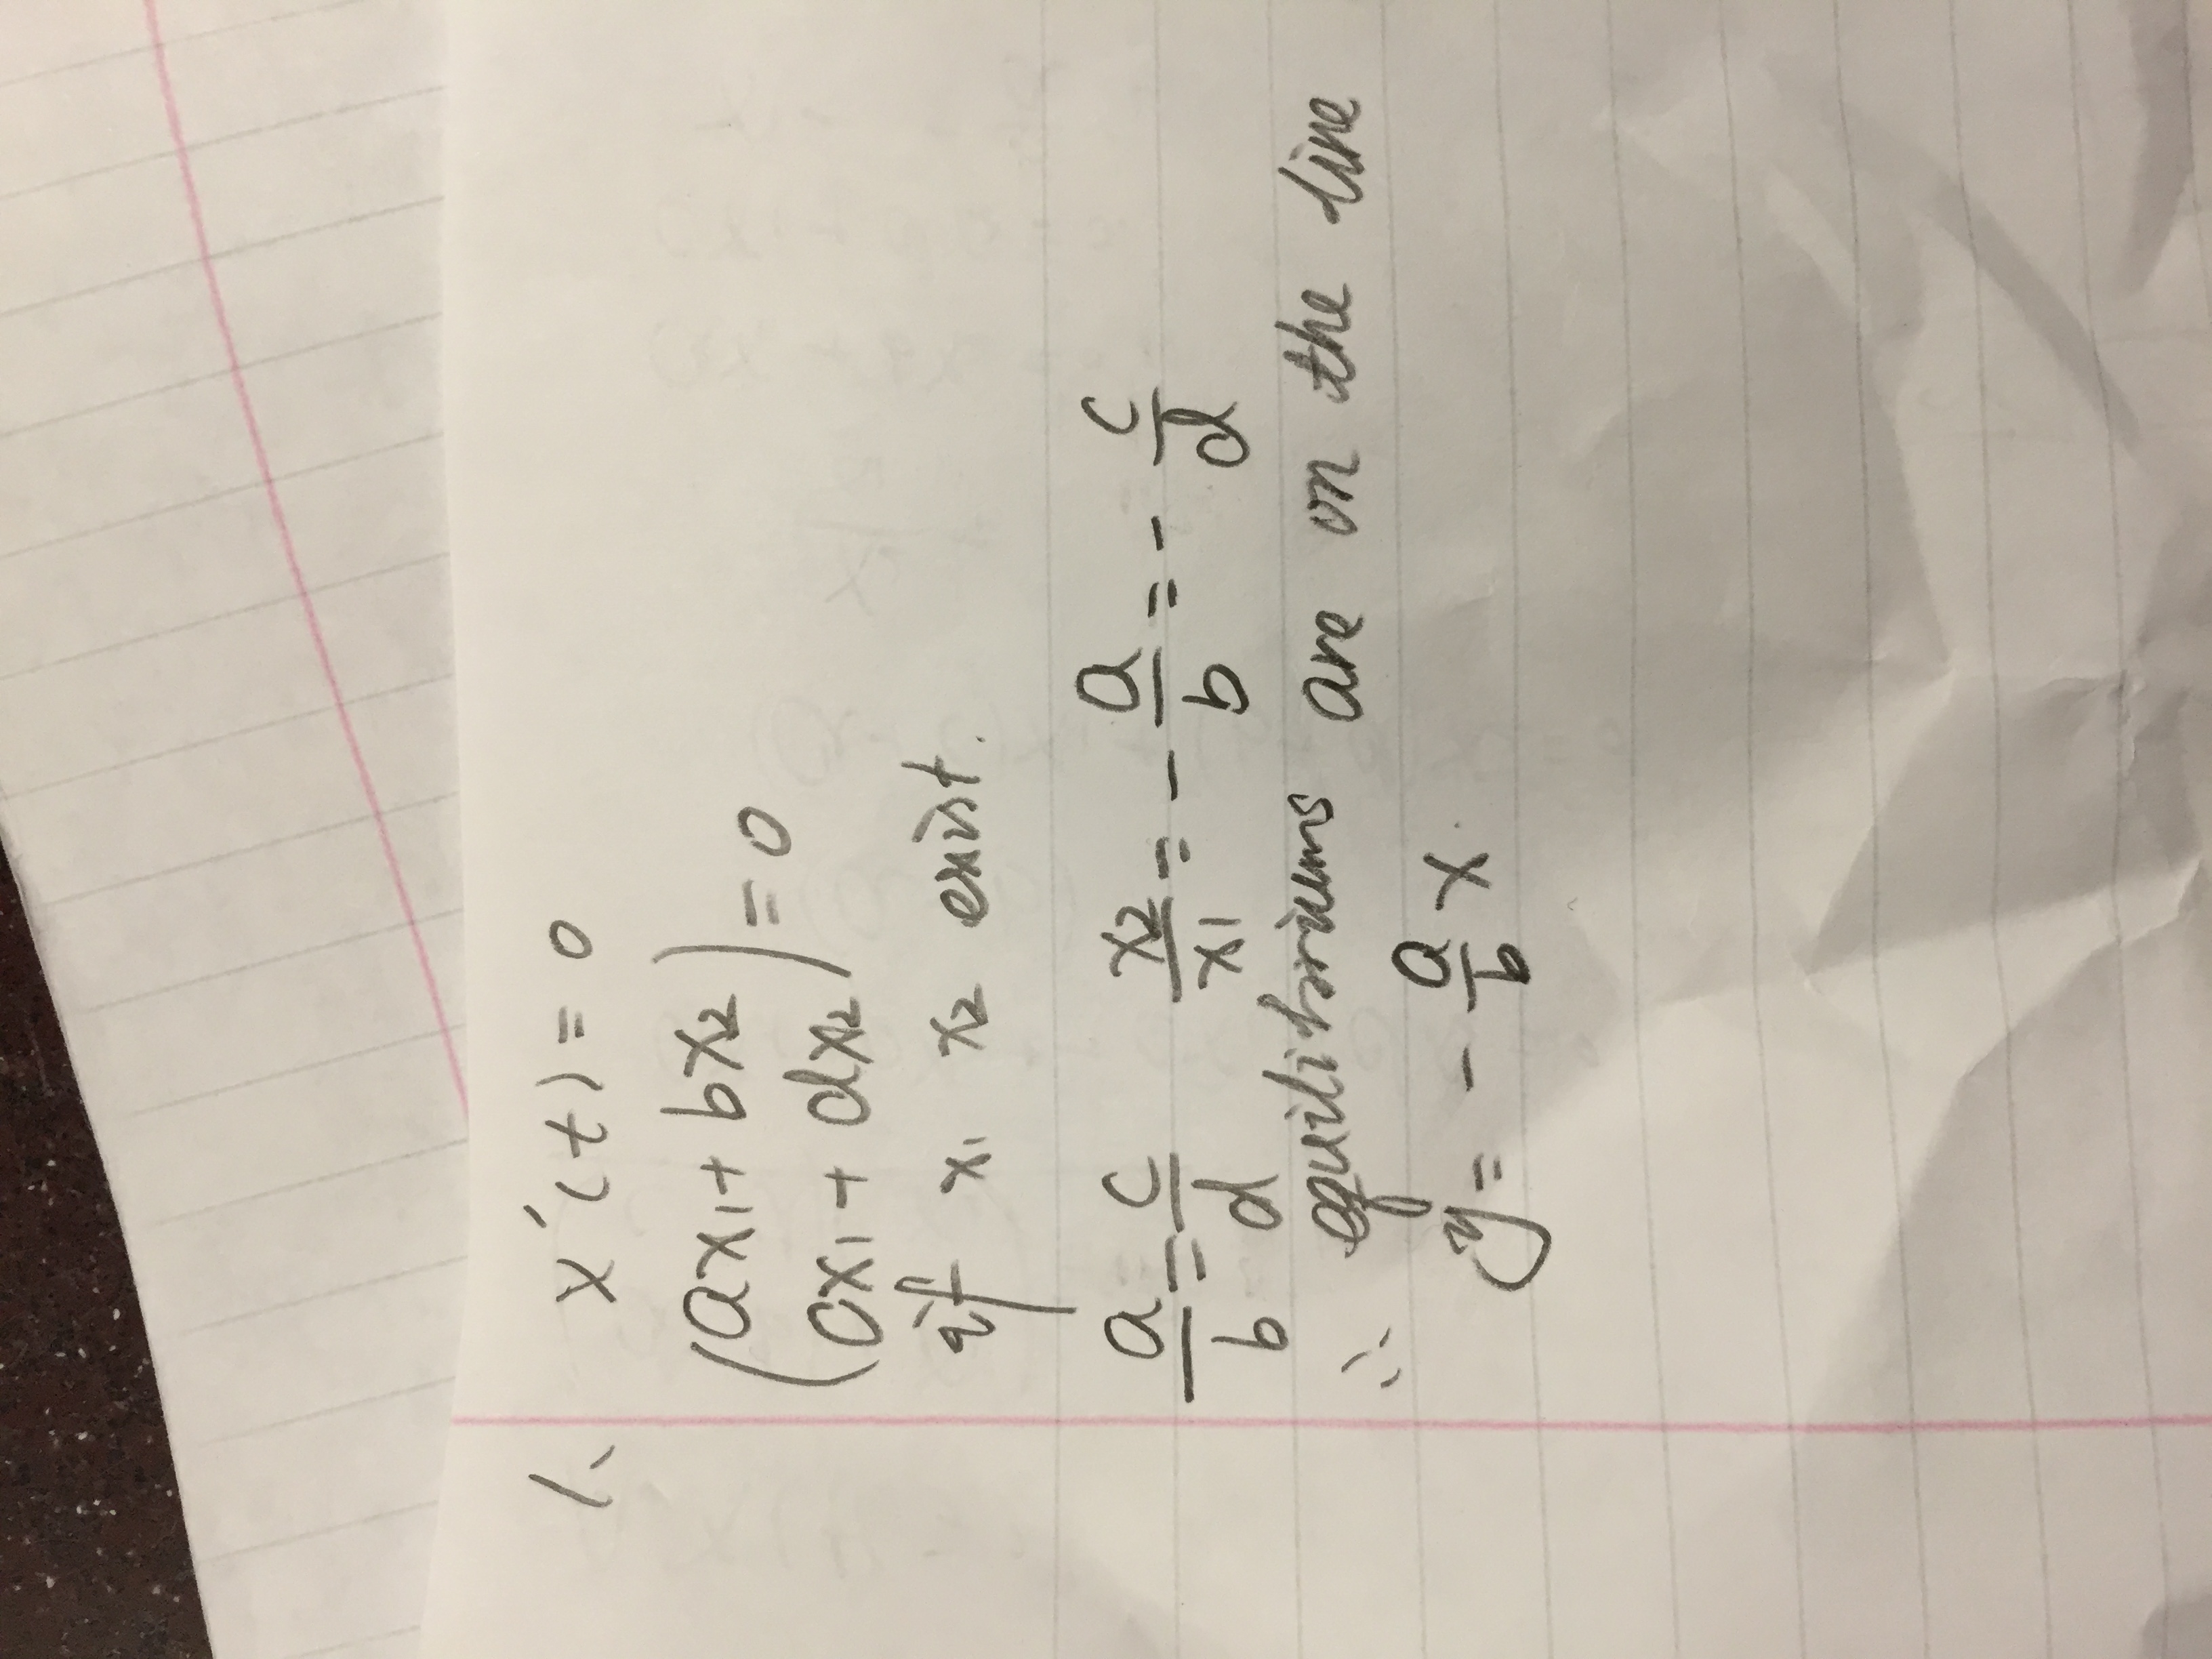 1. x'(t) = 0
(ax1 + bx2
cx1 + dx2) = 0
if x1 x2 exist.
a/b = c/d x2/x1 = - a/b = - c/d
∴ equilibriums are on the line
y = - a/b x.